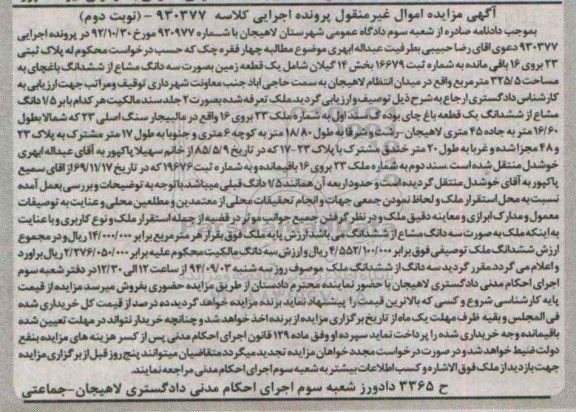 آگهی مزایده اموال غیرمنقول پرونده اجرایی کلاسه ۹۳۰۳۷۷ - (نوبت دوم)
بموجب دادنامه صادره از شعبه سوم دادگاه عمومی شهرستان لاهیجان با شماره ۹۳۰۹۷۷ مورخ ۹۲/۱۰/۳۰ در پرونده اجرایی
۹۳۰۳۷۷ دعوی آقای رضا حبیبی بطرفیت عبداله ابهری موضوع مطالبه چهار فقره چک که حسب درخواست محکوم له پلاک ثبتی
۲۳ بروی ۱۶ باقی مانده به شماره ثبت ۱۶۶۷۹ بخش ۱۴ گیلان شامل یک قطعه زمین بصورت سه دانگ مشاع از ششدانگ باغچای به
مساحت ۳۲۵/۵ مترمربع واقع در میدان انتظام لاهیجان به سمت حاجی آباد جنب معاونت شهرداری توقیف ومراتب جهت ارزیابی به
کارشناس دادگستری ارجاع به شرح ذیل توصیف و ارزیابی گردید ملک تعرفه شده بصورت ۲ جلد سند مالکیت هر کدام بابر ۱/۵ دانگ
مشاع از ششدانگ یک قطعه باغ چای بوده که سند اول به شماره ملک ۲۳ بروی ۱۶ واقع در مالبیجار سنگ اصلی ۲۳ که شمالا بطول
۱۶/۶۰ متر به جاده ۴۵ متری لاهیجان - رشت و شرقا به طول ۱۸/۸۰ متر به کوچه ۶ متری و جنوبا به طول ۱۷ متر مشترک به پلاک ۲۳
و ۴۸ مجزا شده و غربا به طول ۲۰ متر خندق مشترک با پلاک ۲۳-۱۷ که در تاریخ ۸۵/۵/۹ از خانم سهیلا پاکپور به آقای عبداله ابهری
خوشدل منتقل شده است. سند دوم به شماره ملک ۲۳ بروی ۱۶ باقیمانده و به شماره ثبت ۱۹۶۷۶ که در تاریخ ۶۹/۱۱/۱۷ از آقای سمیع
پاکپور به آقای خوشدل منتقل گردیده است و حدود اربعه آن همانند ۱/۵ دانگ قبلی میباشد با توجه به توضیحات و بررسی بعمل آمده
نسبت به محل استقرار ملک و لحاظ نمودن جمعی جهات و انجام تحقیقات محلی از معتمدین و مطلعین محلی و عنایت به توصیفات
معمول و مدارک ابرازی و معاینه دقیق ملک و در نظر گرفتن جمیع جوانب موثر در قضیه از جمله استقرار ملک و نوع کاربری و با عنایت
به اینکه ملک به صورت سه دانگ مشاع از ششدانگ می باشد ارزش پایه ملک فوق بقرار هر متر مربع برابر ۱۴/۰۰۰/۰۰۰ ریال و در مجموع
ارزش ششدانگ ملک توصیفی فوق برابر ۴/۵۵۲/۱۰۰/۰۰۰ ریال و ارزش سه دانگ مالکیت محکوم علیه برابر ۲/۲۷۶/۰۵۰/۰۰۰ ریال برآورد
و اعلام می گردد مقرر گردید سه دانگ از ششدانگ ملک موصوف روز سه شنبه ۹۴/۰۹/۰۳ از ساعت ۱۲ الی ۱۲/۳۰ در دفتر شعبه سوم
اجرای احکام مدنی دادگستری لاهیجان با حضور نماینده محترم دادستان از طریق مزایده حضوری بفروش میرسد مزایده از قیمت
پایه کارشناسی شروع و کسی که بالاترین قیمت را پیشنهاد نماید برنده مزایده خواهد گردید ده درصد از قیمت کل خریداری شده
فی المجلس و بقیه ظرف مهلت یک ماه از تاریخ برگزاری مزایده از برنده اخذ خواهد شد و چنانچه خریدار نتواند در مهلت تعیین شده
باقیمانده وجه خریداری شده را پرداخت نماید سپرده او وفق ماده ۱۲۹ قانون اجرای احکام مدنی پس از کسر هزینه های مزایده بنفع
دولت ضبط خواهد شد و در صورت درخواست مجدد خواهان مزایده تجدید میگردد متقاضیان میتوانند پنج روز قبل از برگزاری مزایده
جهت بازدید از ملک فوق الاشاره و کسب اطلاعات بیشتر به شعبه سوم اجرای احکام مدنی مراجعه نمایند.
ح ۳۳۶۵ دادورز شعبه سوم اجرای احکام مدنی دادگستری لاهیجان-جماعتی